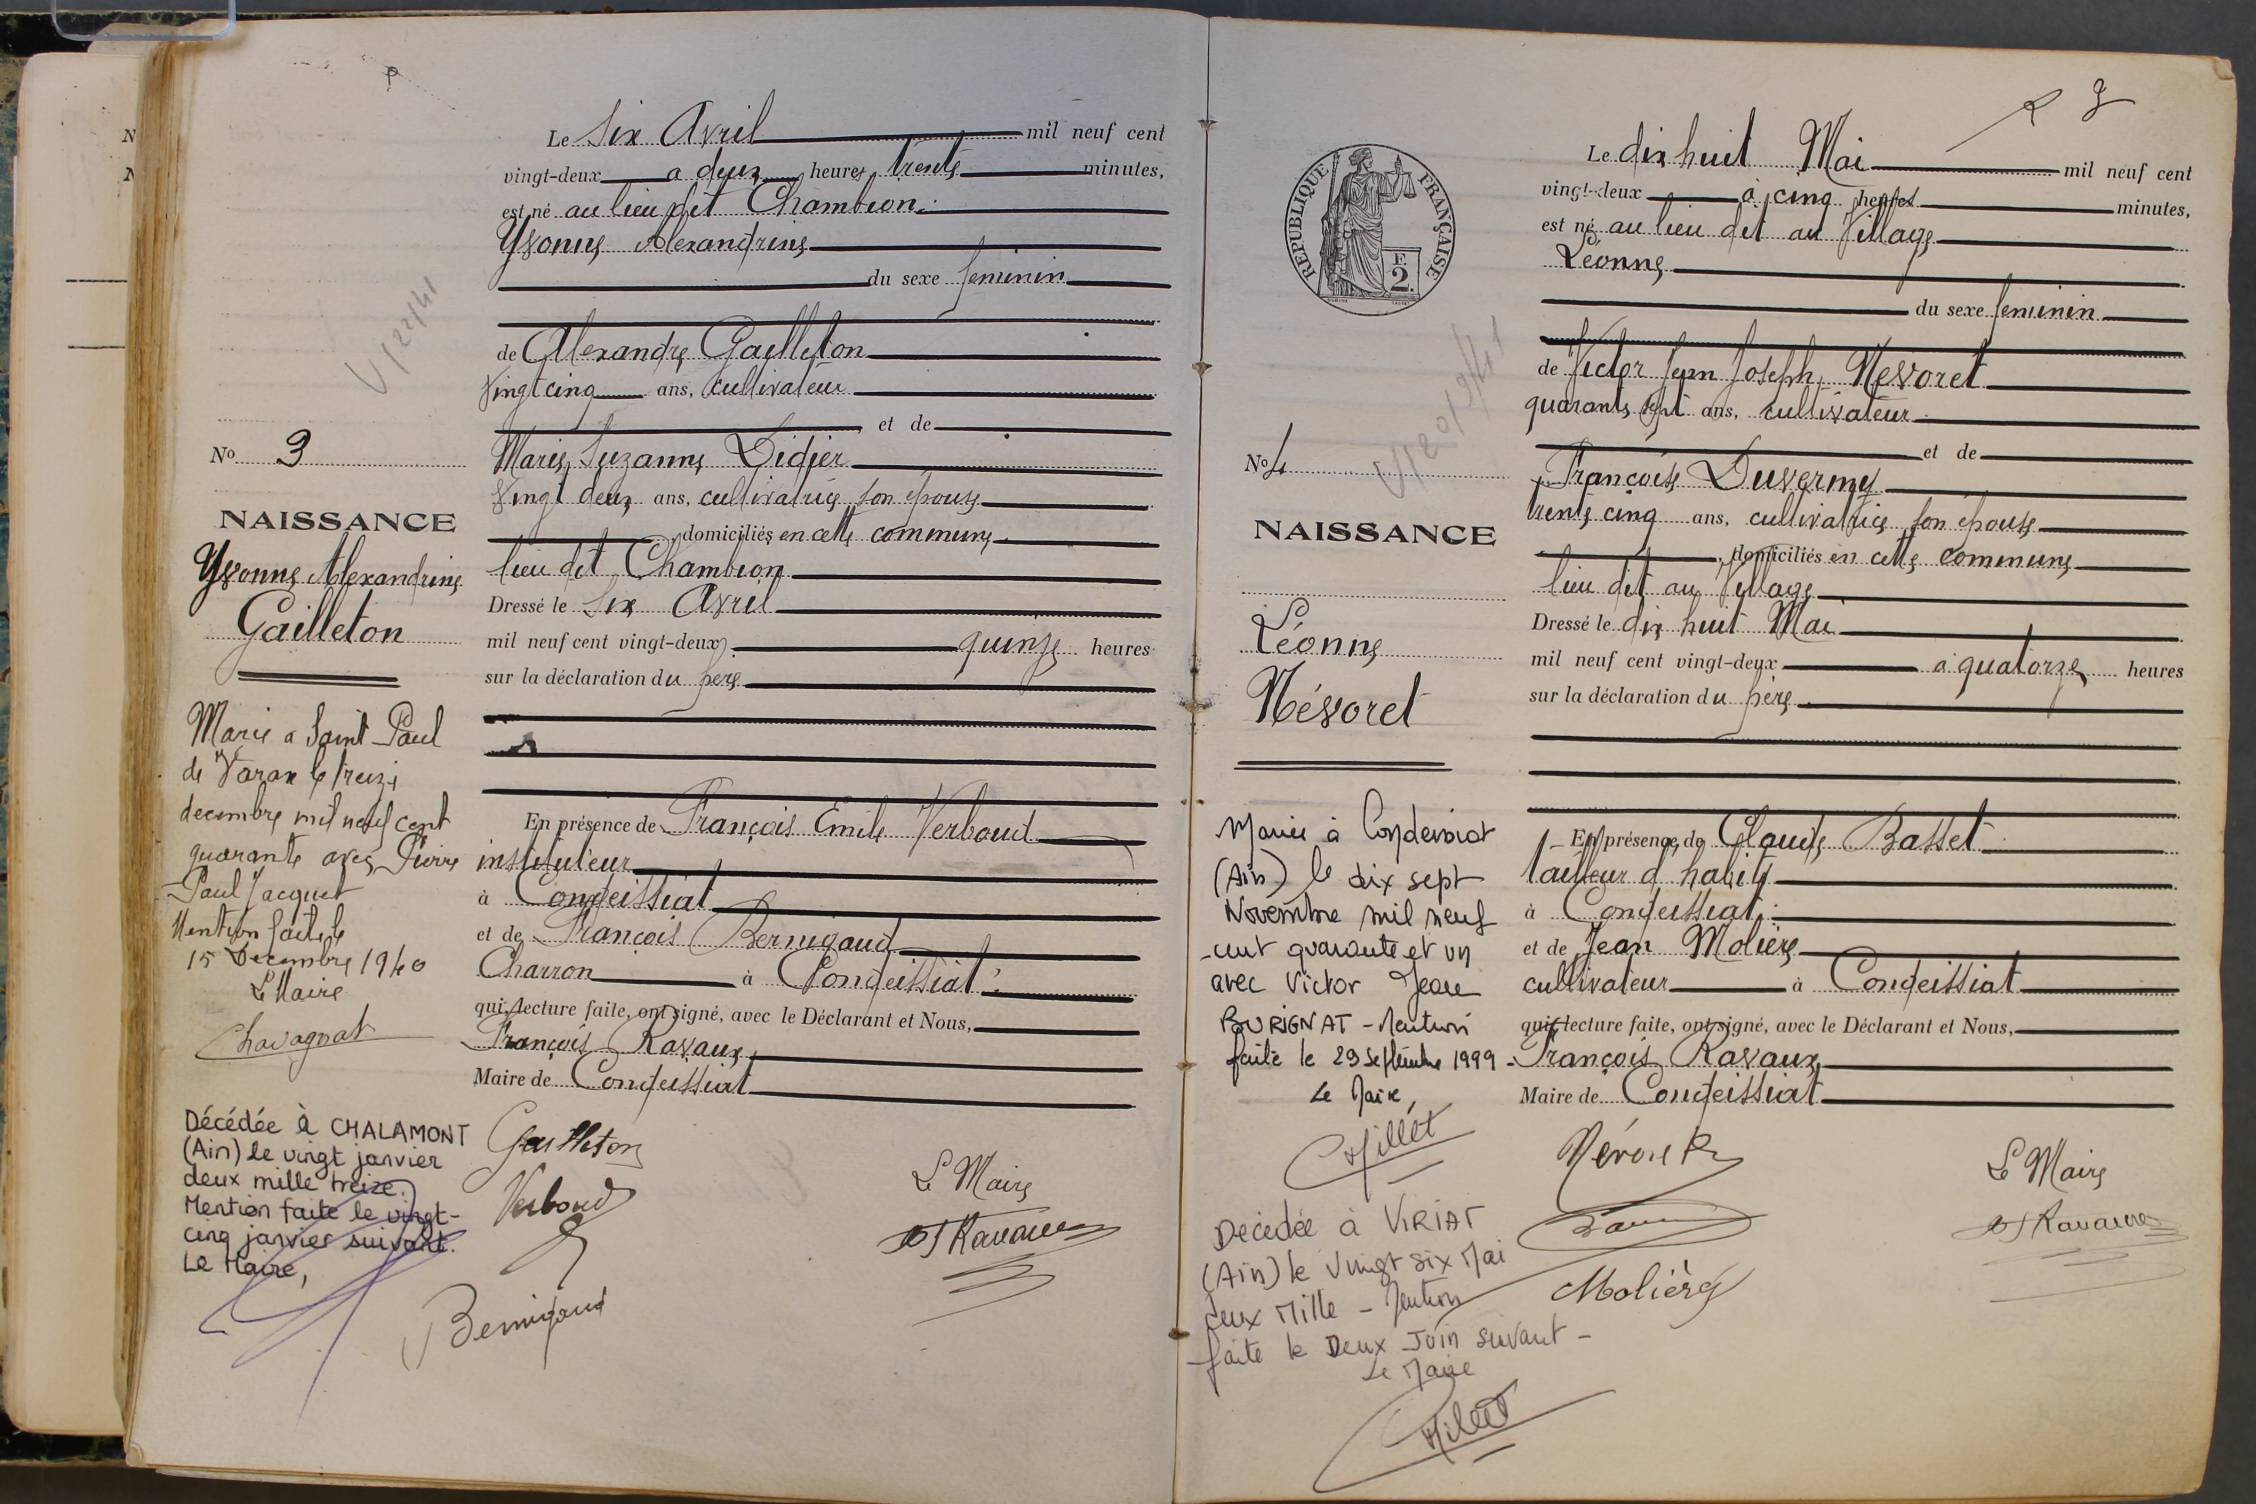 Le Six Avril mil neuf cent
vingt-deux a deux heures trente minutes,
est né au lieu dit Chambion.
Yvonne Alexandrine
du sexe feminin
de Alexandre Gailleton
Vingt cinq ans, cultivateur
et de
Marie Suzanne Didier
Vingt deux ans, cultivatrice son épouse
domiciliés en cette commune
lieu dit Chambion
Dressé le Six Avril
mil neuf cent vingt-deux quinze heures
sur la déclaration du père
En présence de François Emile Verboud
instituteur
à Condeissiat
et de François Bernigaud
Charron à Condeissiat
qui, lecture faite, ont signé, avec le Déclarant et Nous,
François Ravaux
Maire de Condeissiat
Gailleton
Verboud
Bernigaud
Le Maire
Ravaux
No 3
NAISSANCE
Yvonne Alexandrine
Gailleton
Marie a Saint Paul
de Varax le treize
decembre mil neuf cent
quarante avec Pierre
Paul Jacquet
Mention faite le
15 Decembre 1940
Le Maire
Chavagnat
Décédée à CHALAMONT
(Ain) le vingt janvier
deux mille treize.
Mention faite le vingt-
cinq janvier suivant.
Le Maire,
3
RÉPUBLIQUE FRANÇAISE
F.
2.
Le dix huit Mai mil neuf cent
vingt-deux à cinq heures minutes,
est né au lieu dit au Village
Léonne
du sexe feminin
de Victor Jean Joseph Névoret
quarante sept ans, cultivateur
et de
Françoise Duvermy
trente cinq ans, cultivatrice son épouse
domiciliés en cette commune
lieu dit au Village
Dressé le dix huit Mai
mil neuf cent vingt-deux à quatorze heures
sur la déclaration du père
En présence de Claude Basset
tailleur d'habits
à Condeissiat
et de Jean Molière
cultivateur à Condeissiat
qui, lecture faite, ont signé, avec le Déclarant et Nous,
François Ravaux
Maire de Condeissiat
Névoret
Molière
Le Maire
Ravaux
No 4
NAISSANCE
Léonne
Névoret
Mariée à Condeissiat
(Ain) le dix sept
Novembre mil neuf
cent quarante et un
avec Victor Jean
BURIGNAT - Mention
faite le 29 septembre 1999 -
Le Maire,
Millet
Décédée à VIRIAT
(Ain) le Vingt six Mai
Deux Mille - Mention
faite le Deux Juin suivant -
Le Maire
Millet